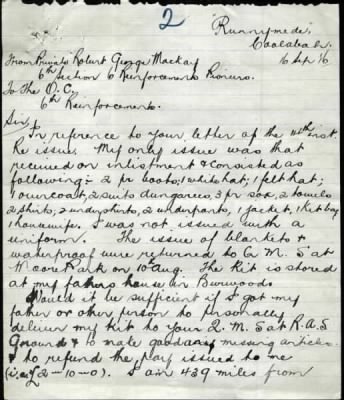 2
"Runnymede",
Coolabah.
16 Sept 16
From Private Robert George Mackay
6th Section 6 Reinforcements Pioneers.
To The O.C.
6th Reinforcements.
Sir,
In reference to your letter of the inst
Re issue. My only issue was that
received on inlistment & consisted as
following:- 2 pr boots; 1 white hat; 1 felt hat;
1 overcoat; 2 suits dungarees, 3 pr sox, 2 towels
2 shirts, 2 undyshirts, 2 underpants, 1 jacket, 1 kit bag
1 housewife. I was not issued with a
uniform. The issue of blankets &
waterproof were returned to Q.M.S at
Moore Park on 10 Aug. The Kit is stored
at my fathers house in Burwood
Would it be sufficient if I got my
father or other person to personally
deliver my kit to your Q.M.S at R.A.S
Ground & to make good any missing article.
& to refund the pay issued to me
(i.e £2-10-0). I am 439 miles from